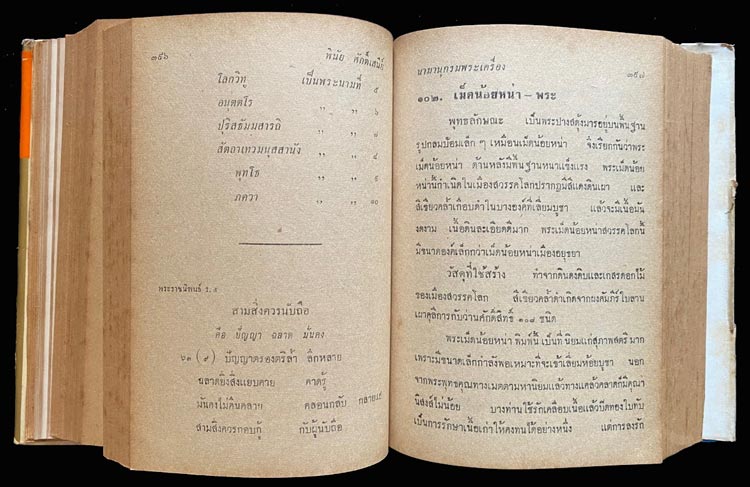 ๓๕๖
พินัย ศักดิ์เสนีย์
โลกวิทู เป็นพระนามที่ ๕
อนุตตโร ,, ,, ๖
ปุริสธัมมสารถิ ,, ,, ๗
สัตถาเทวมนุสสานัง ,, ,, ๘
พุทโธ ,, ,, ๙
ภควา ,, ,, ๑๐
พระราชนิพนธ์ ร. ๕
สามสิ่งควรนับถือ
คือ ปัญญา ฉลาด มั่นคง
๖๓ (๙) ปัญญาตรองตริล้ำ ลึกหลาย
ฉลาดยิ่งสิ่งแยบคาย คาดรู้
มั่นคงไม่คืนคลาย คลอนกลับ กลายแฮ
สามสิ่งควรกอบกู้ กับผู้นับถือ
นามานุกรมพระเครื่อง
๓๕๗
๑๐๒. เม็ดน้อยหน่า – พระ
พุทธลักษณะ เป็นพระปางสดุ้งมารอยู่บนพื้นฐาน
รูปกลมป้อมเล็ก ๆ เหมือนเม็ดน้อยหน่า จึงเรียกกันว่าพระ
เม็ดน้อยหน่า ด้านหลังมีพื้นฐานหนาแข็งแรง พระเม็ดน้อย
หน่านี้กำเนิดในเมืองสวรรคโลกปรากฏมีสีแดงดินเผา และ
สีเขียวคล้ำเกือบดำในบางองค์ที่เลี่ยมบูชา แล้วจะมีเนื้อมัน
งดงาม เนื้อดินละเอียดดีมาก พระเม็ดน้อยหน่าสวรรคโลกนี้
มีขนาดองค์เล็กกว่าเม็ดน้อยหน่าเมืองอยุธยา
วัสดุที่ใช้สร้าง ทำจากดินดงดิบและเกสรดอกไม้
ของเมืองสวรรคโลก สีเขียวคล้ำดำเกิดจากผงคัมภีร์ใบลาน
เผาคลุกิการกับว่านศักดิ์สิทธิ์ ๑๐๘ ชนิด
พระเม็ดน้อยหน่า พิมพ์นี้เป็นที่นิยมแก่สุภาพสตรีมาก
เพราะมีขนาดเล็กกำลังพอเหมาะที่จะเข้าเลี่ยมห้อยบูชา นอก
จากพระพุทธคุณทางเมตตามหานิยมแล้วทางแคล้วคลาดก็มีคุณา
นิสงส์ไม่น้อย บางท่านใช้รักเคลือบเนื้อแล้วปิดทองใบทับ
เป็นการรักษาเนื้อเก่าให้คงทนได้อย่างหนึ่ง แต่การลงรัก